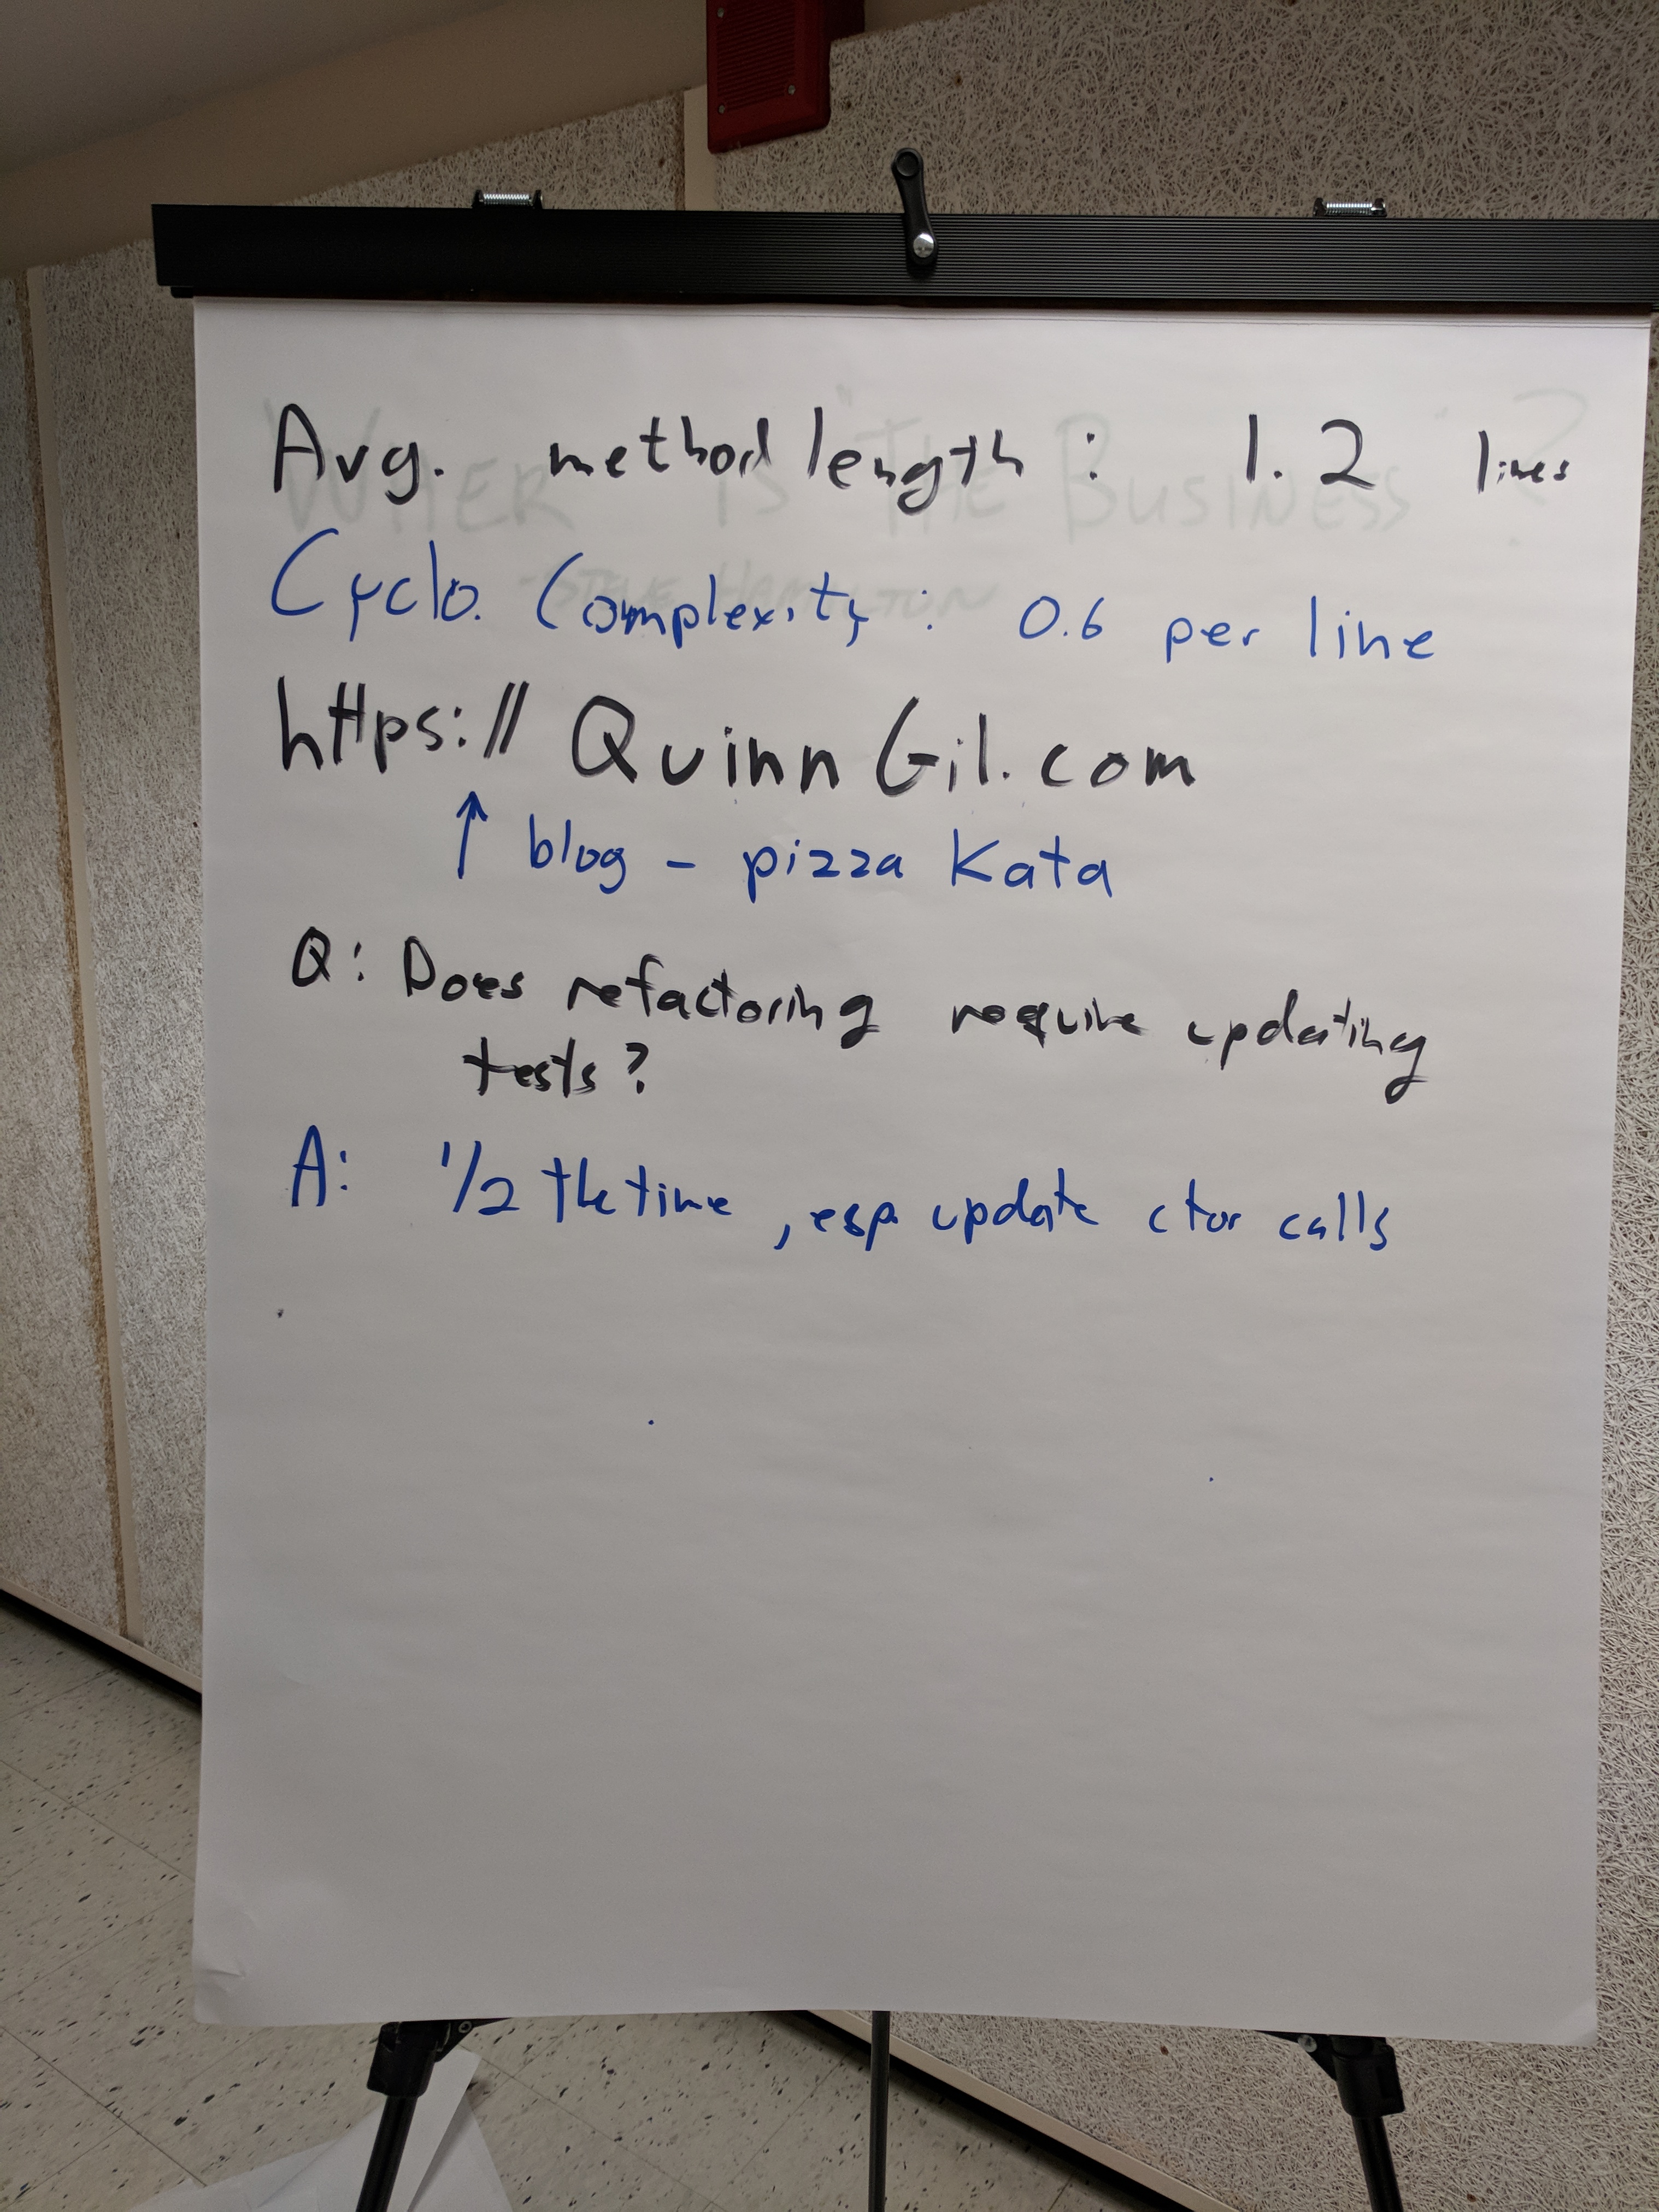 Avg. method length: 1.2 lines
Cyclo. Complexity: 0.6 per line
https://QuinnGil.com
↑ blog - pizza Kata
Q: Does refactoring require updating
tests?
A: 1/2 the time, esp. update ctor calls